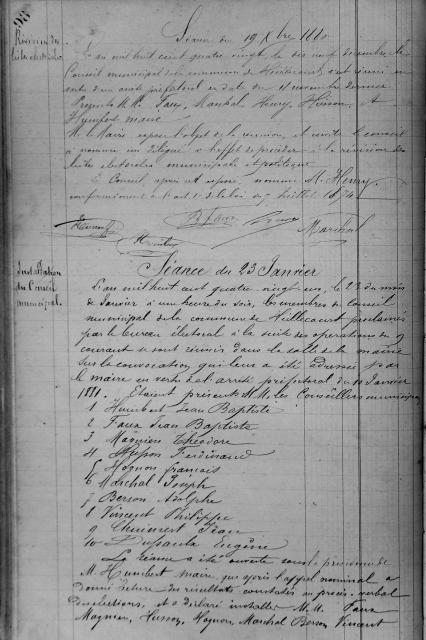 98
Séance du 19 Xbre 1880
Révision des
listes électorales
L'an mil huit cent quatre vingt, le dix neuf décembre, le
Conseil municipal de la commune de Heillecourt s'est réuni en
vertu d'un arrêté préfectoral en date du novembre dernier
Présents M.M. Faux, Marchal, Henry, Husson, et
Humbert maire
M. le Maire expose l'objet de la réunion, et invite le conseil
à nommer un délégué à l'effet de procéder à la révision des
listes électorales municipale et politique
Le Conseil, après cet exposé, nomme M. Henry,
conformément à l'art. 1 de la loi du juillet 1874.
Marchal
Installation
du Conseil
municipal.
Séance du 23 Janvier
L'an mil huit cent quatre vingt un, le 23 du mois
de Janvier à une heure du soir, les membres du Conseil
municipal de la commune de Heillecourt proclamés
par le bureau électoral à la suite des opérations du 9
courant se sont réunis dans la salle de la mairie
sur la convocation qui leur a été adressée par
le maire en vertu de l'arrêté préfectoral du Janvier
1881. Étaient présents M.M. les Conseillers municipaux
1 Humbert Jean Baptiste
2 Faux Jean Baptiste
3 Magnien Théodore
4 Husson Ferdinand
5 Hognon français
6 Marchal Joseph
7 Berson Adolphe
8 Vincent Philippe
9 Jean
10 Eugène
La séance a été ouverte sous la présidence de
M. Humbert maire, qui après l'appel nominal a
donné lecture des résultats constatés au procès-verbal
des élections, et a déclaré installer M.M. Faux
Magnien, Husson, Hognon, Marchal Berson, Vincent